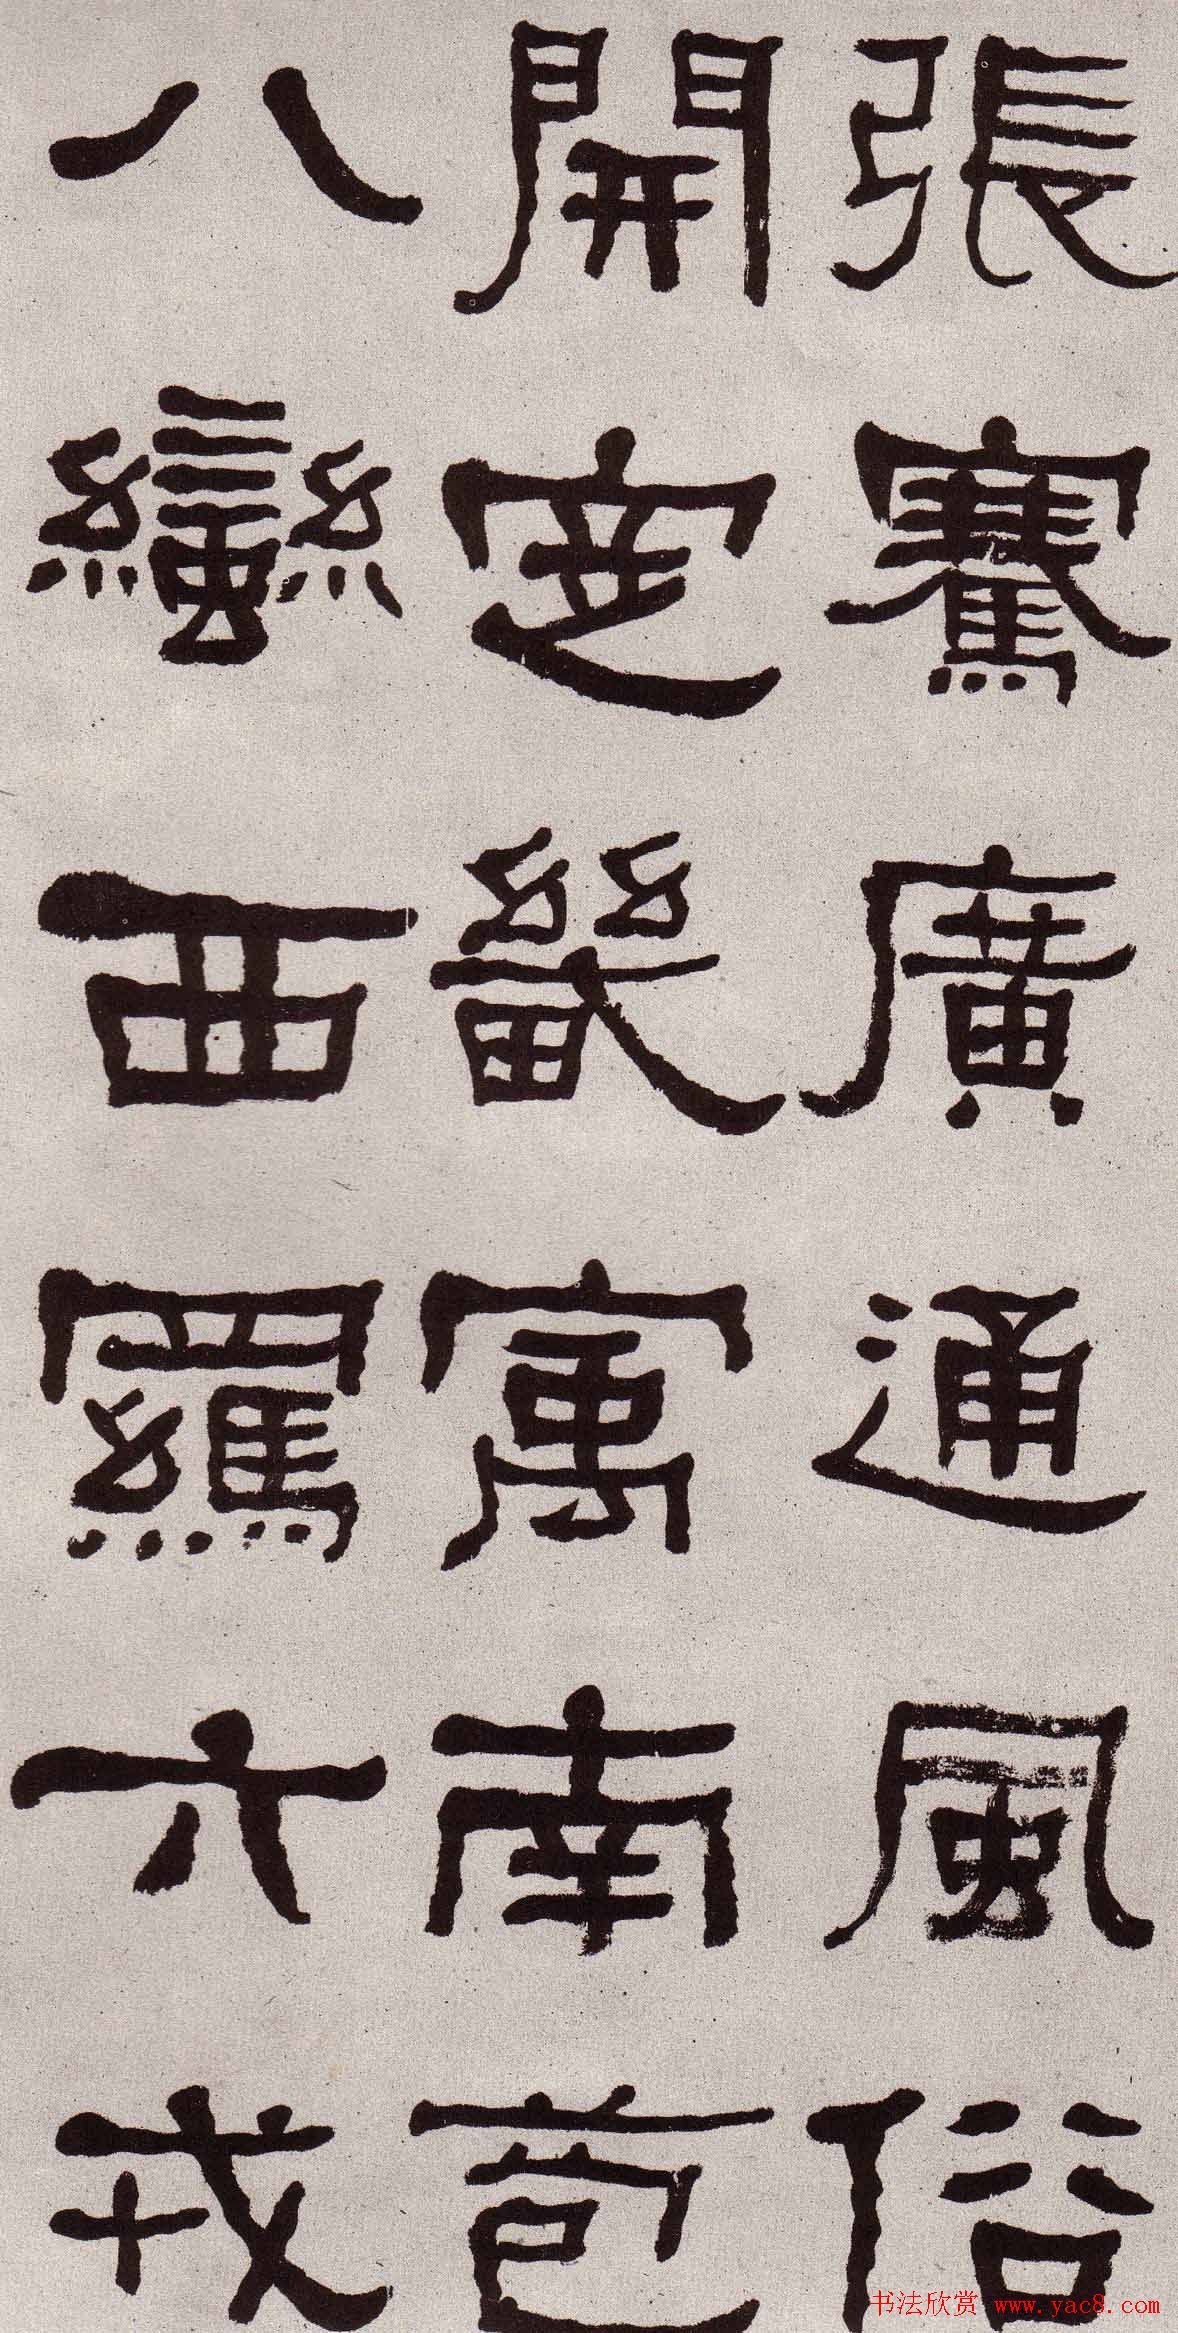 張騫廣通風俗
開定畿寓南苞
八蠻西羈六戎
书法欣赏 www.yac8.com